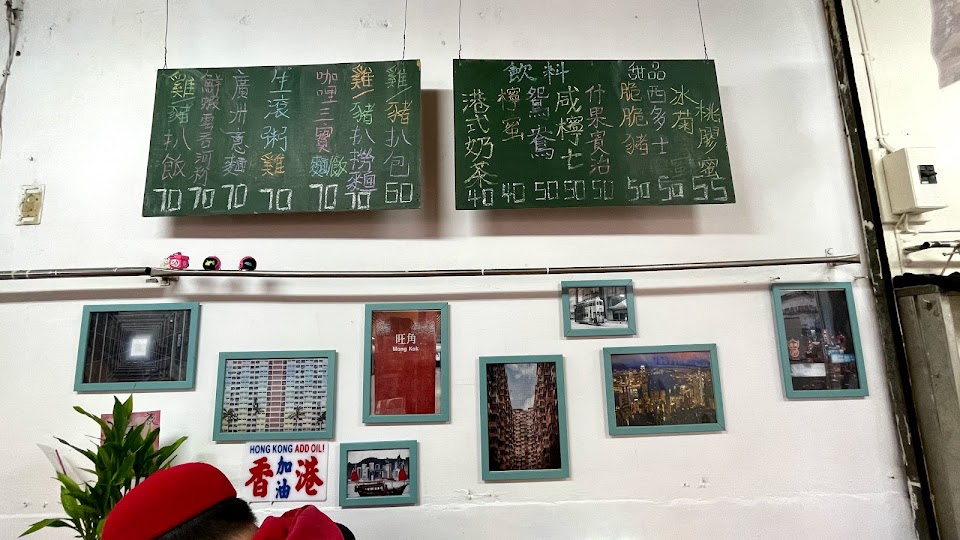 雞/豬扒飯 70
鮮蝦雲吞河粉 70
廣州意麵 70
生滾粥雞 70
咖哩三寶麵/飯 70
雞/豬扒撈麵 70
雞/豬扒包 60
飲料
港式奶茶 40
檸蜜 40
鴛鴦 50
咸檸士 50
什果賓治 50
甜品
脆脆豬 50
西多士 50
冰菊 50
桃膠蜜 55
旺角
Mong Kok
HONG KONG ADD OIL!
香加油港